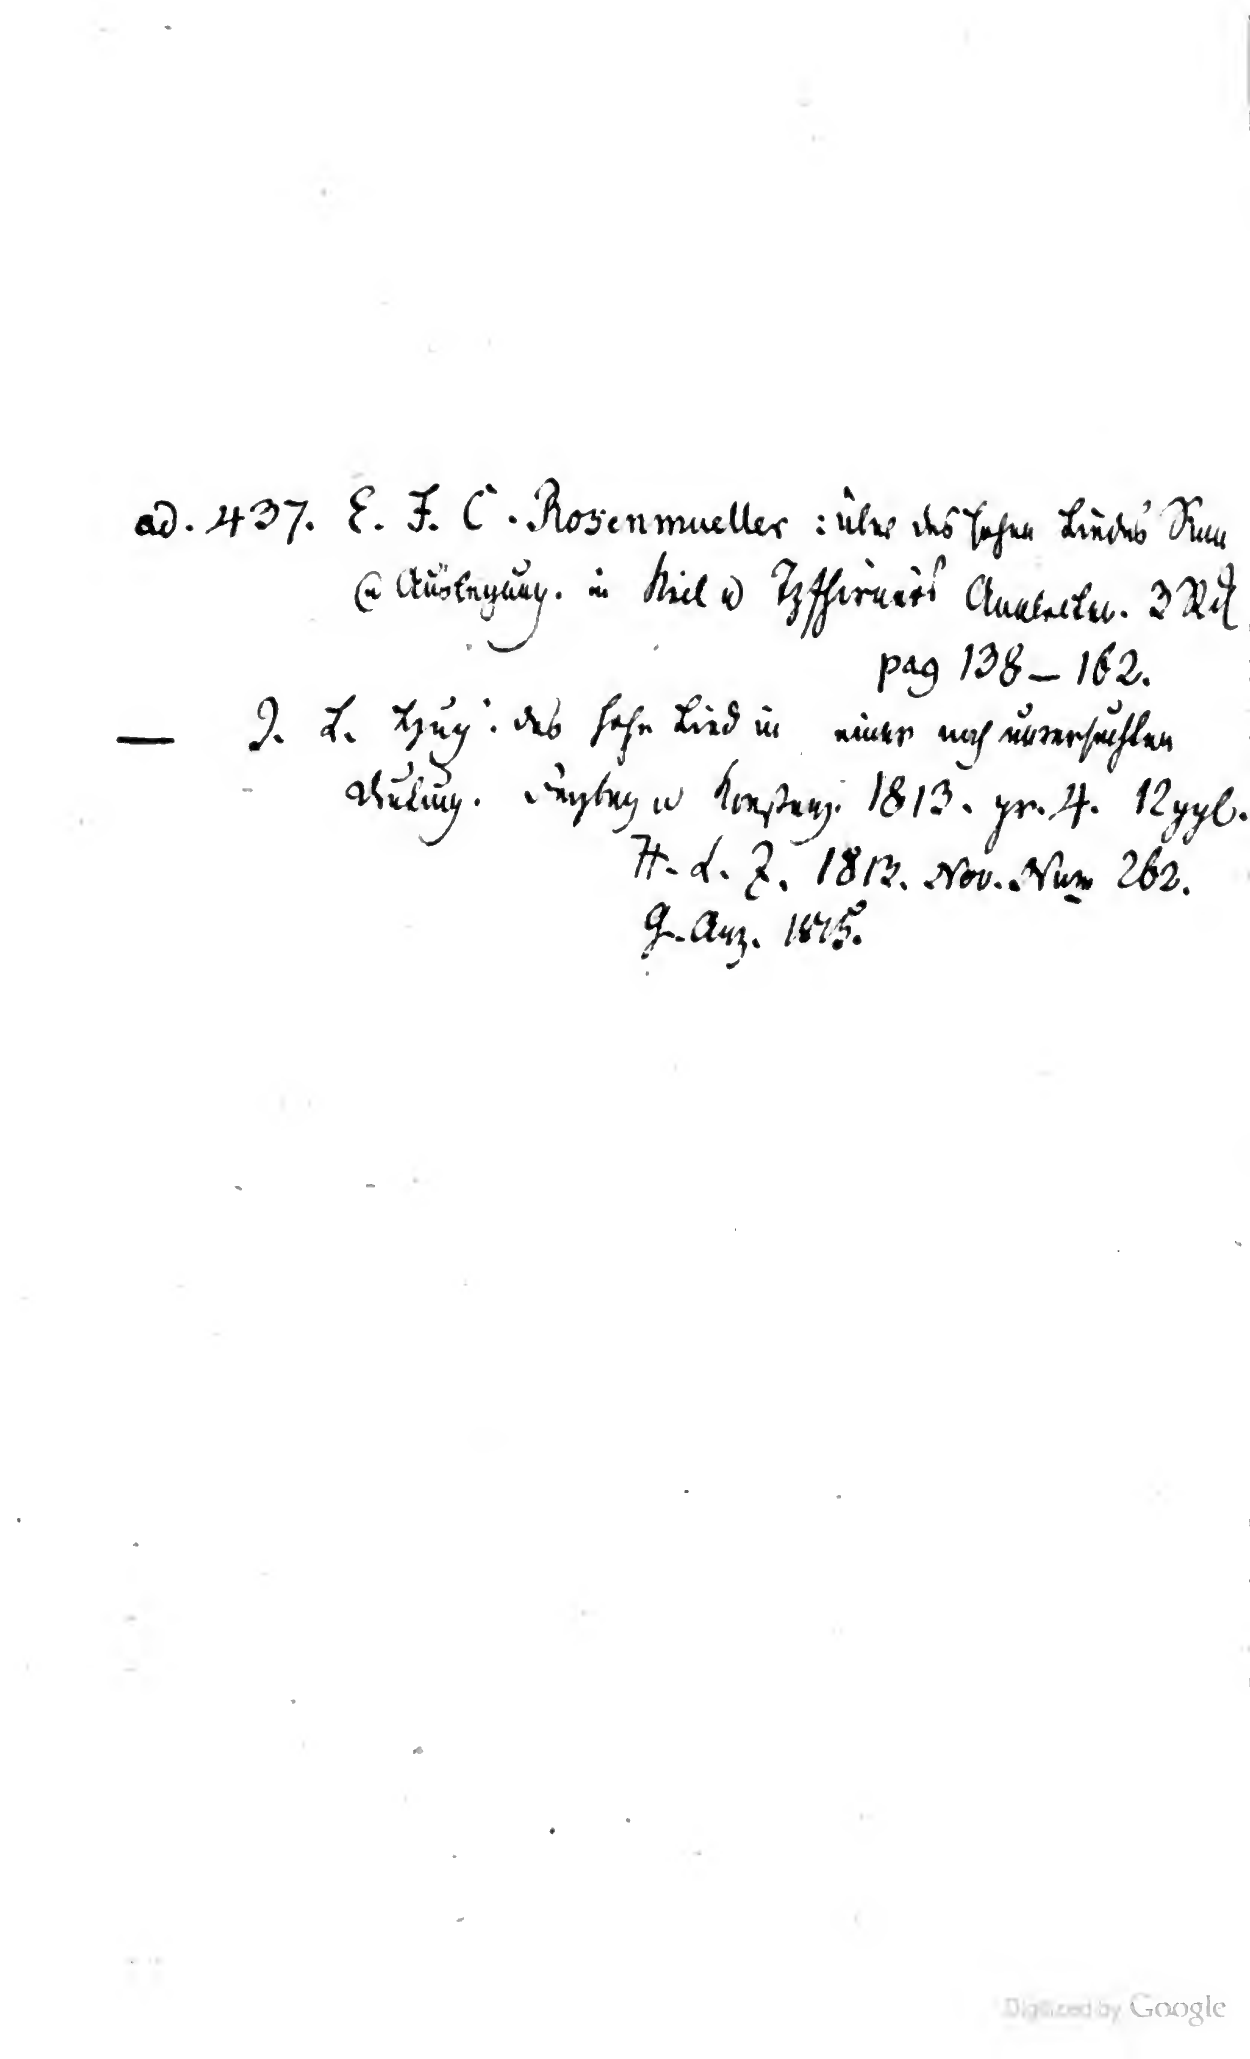 ad. 437. E. F. C. Rosenmueller: über des hohen Liedes Sinn
u Auslegung. in Keil u Tzschirners Analecten. 3 St
pag 138 – 162.
— J. L. Hug: das hohe Lied in einer noch unversuchten
Deutung. Freyburg u Konstanz. 1813. gr. 4. 12 ggl.
H. L. Z. 1813. Nov. Num 262.
G. Anz. 1815.
Digitized by Google